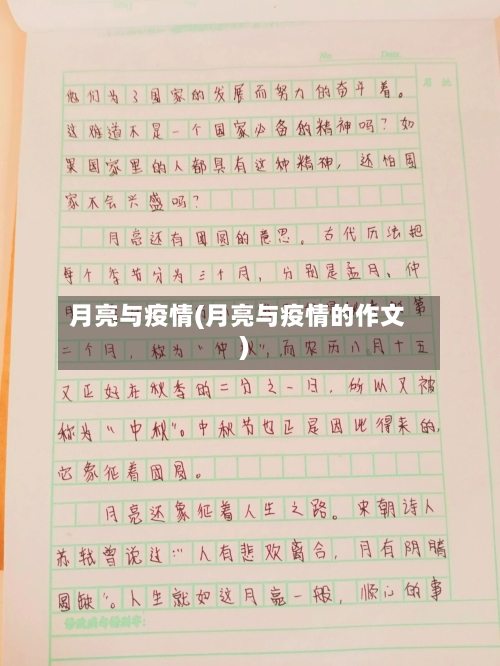 No.
Date.
他们为了国家的发展而努力的奋斗着。
这难道不是一个国家必备的精神吗？如
果国家里的人都具有这种精神，还怕国
家不会兴盛吗？
月亮还有团圆的意思。古代历法把
每个季节分为三个月，分别是孟月、仲
月亮与疫情(月亮与疫情的作文
)
第
二个月，称为“仲秋”，而农历八月十五
又正好在秋季的二分之一日，所以又被
称为“中秋”。中秋节也正是因此得来的，
它象征着团圆。
月亮还象征着人生之路。宋朝诗人
苏轼曾说过：“人有悲欢离合，月有阴晴
圆缺”。人生就如这月亮一般，顺心的事